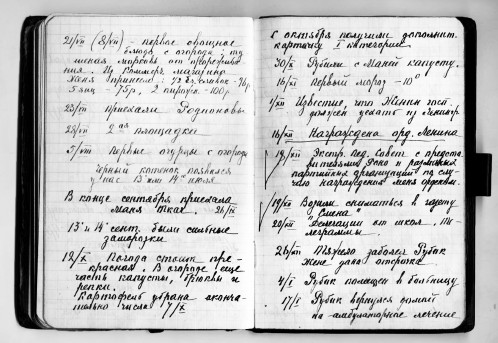 21/VII (8/VII) - первое овощное
блюдо с огорода: ту-
шеная морковь от прореживa-
ния. Из Коммерч. магазина
Маня принесла: 72 гр. сливок - 76р.
5 яиц - 75р, 2 пирожн - 100р.
23/VII Приехали Родионовы
28/VII 2ая площадка
5/VIII Первые огурцы с огорода
Чёрный котенок появился
у нас 13 или 14го июля
В конце сентября приехала
Маня Ткач. 26/IX
13 и 14 сент. были сильные
заморозки
12/X Погода стоит пре-
красная. В огороде еще
часть капусты, брюквы и
репки.
Картофель убрана оконча-
тельно числа 17/X
С октября получаем дополнит.
карточку I категории
30/X Рубили с Маней капусту.
16/XI Первый мороз - 10°
7/XII Известие, что Женин госп.
должен уехать из Ленингр.
16/XII Награждена орд. Ленина
19/XII Экстр. Пед. Совет с предста-
вителями Роно и различных
партийных организаций по слу-
чаю награждения меня орденом.
19/XII Возили сниматься в газету
"Смена"
20/XII Делегации от школ. Те-
леграммы.
26/XII Тяжело заболел Рубик
Жене дана отсрочка
4/I Рубик помещен в больницу
17/I Рубик вернулся домой
на амбулаторное лечение